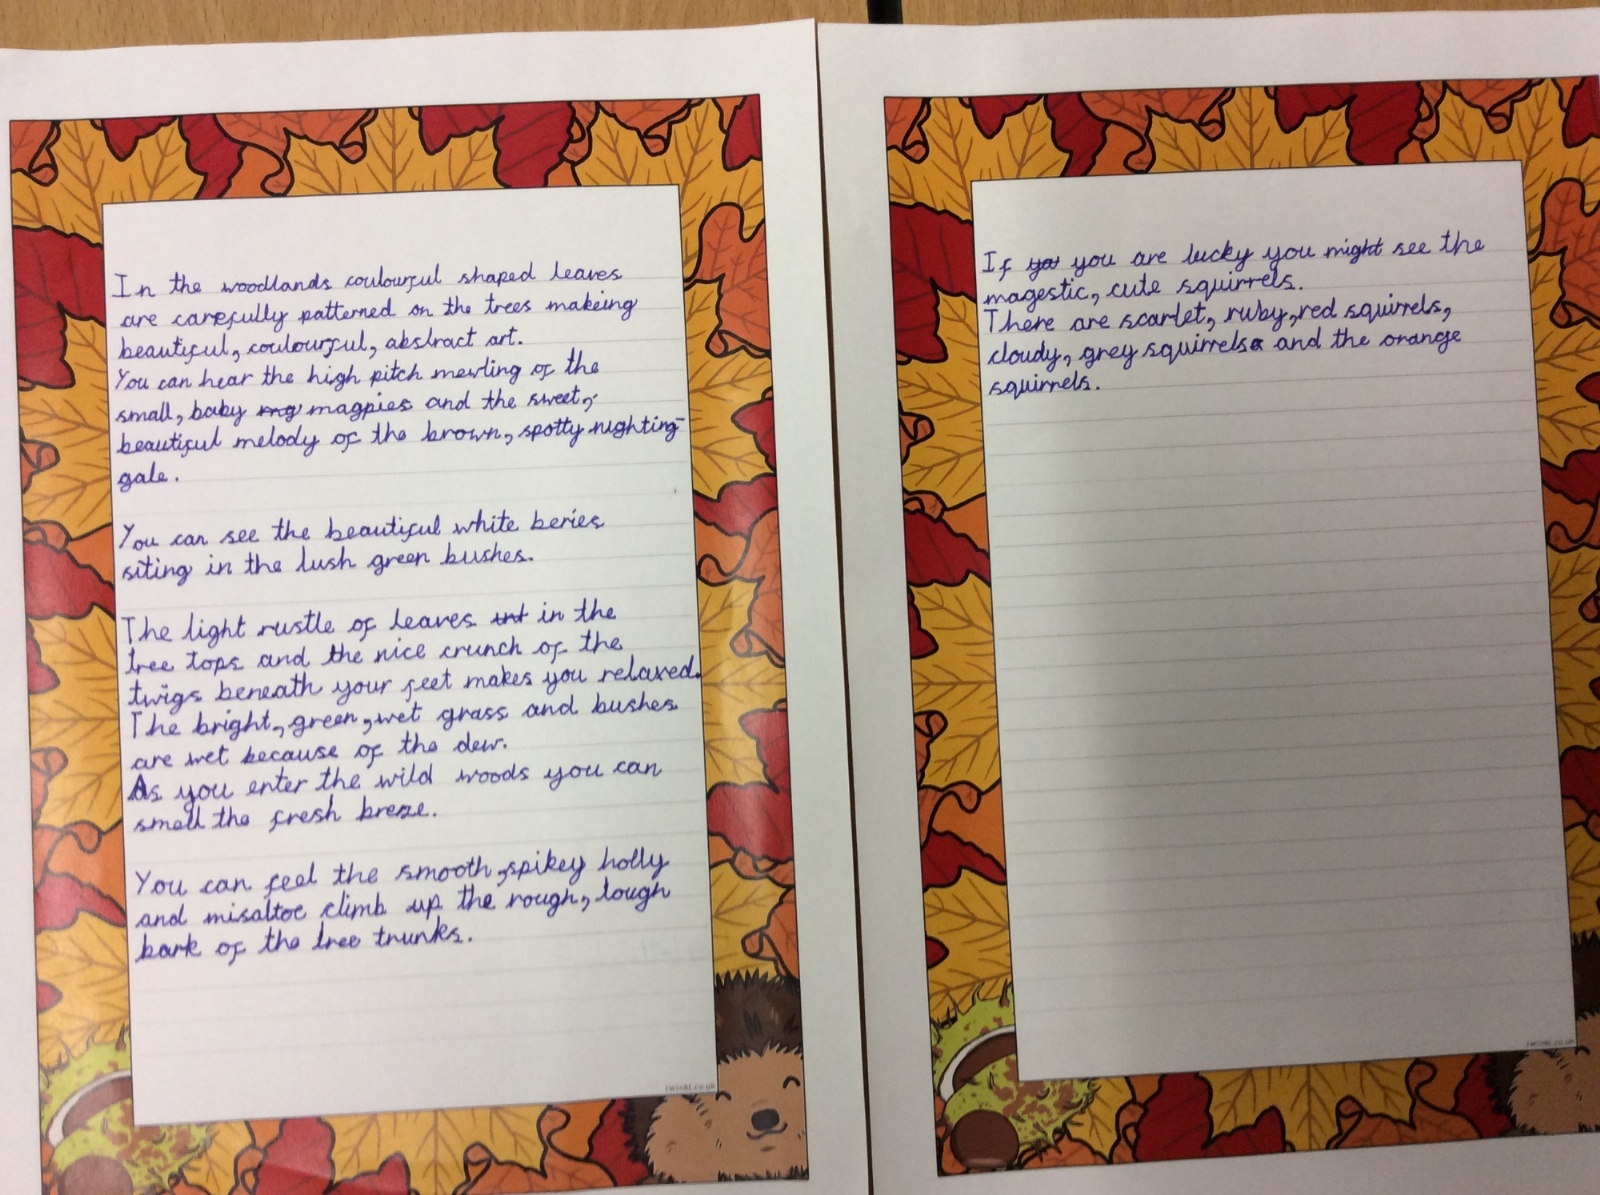 In the woodlands coulourful shaped leaves
are carefully patterned on the trees makeing
beautiful, coulourful, abstract art.
You can hear the high pitch mewling of the
small, baby magpies and the sweet,
beautiful melody of the brown, spotty nighting-
gale.
You can see the beautiful white beries
siting in the lush green bushes.
The light rustle of leaves in the
tree tops and the nice crunch of the
twigs beneath your feet makes you relaxed.
The bright, green, wet grass and bushes
are wet because of the dew.
As you enter the wild woods you can
smell the fresh breze.
You can feel the smooth, spikey holly
and misaltoe climb up the rough, tough
bark of the tree trunks.
twinkl.co.uk
If you are lucky you might see the
magestic, cute squirrels.
There are scarlet, ruby, red squirrels,
cloudy, grey squirrels and the orange
squirrels.
twinkl.co.uk